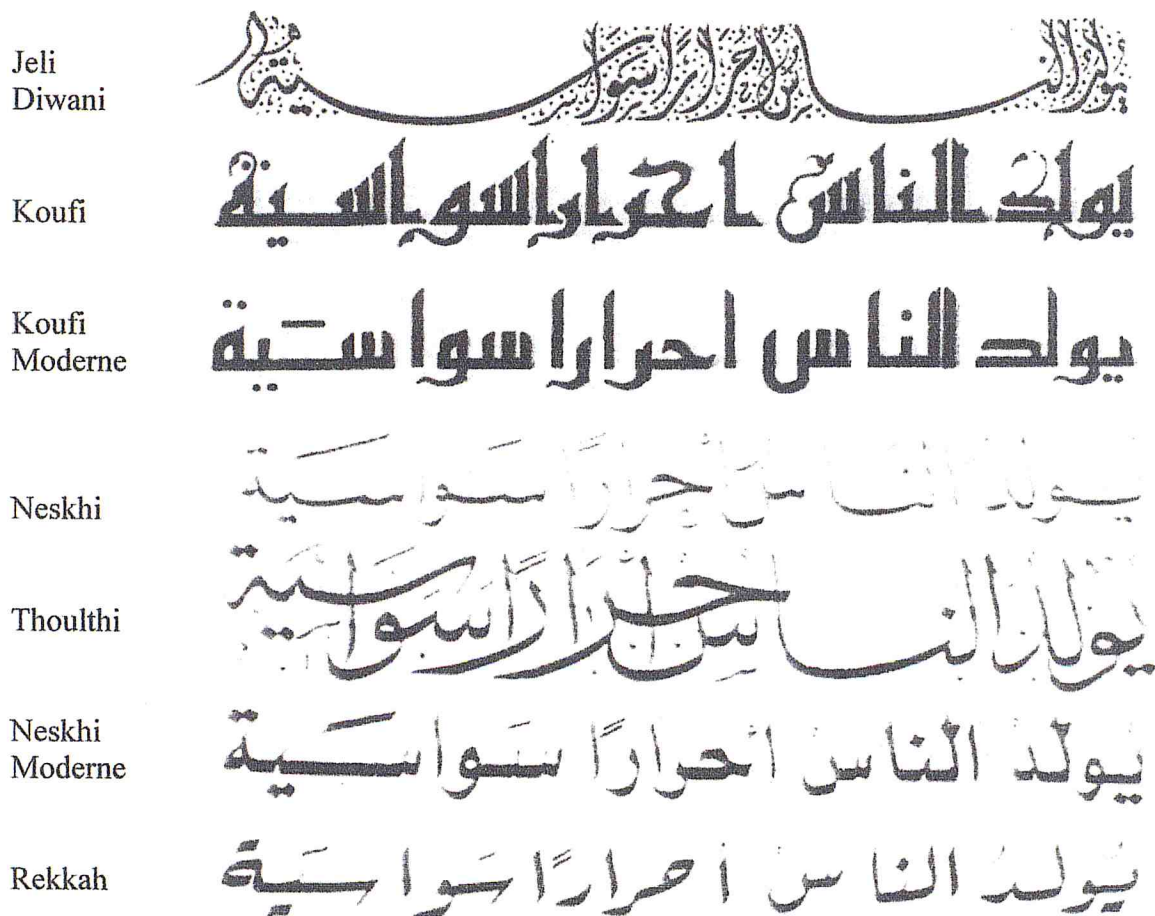 Jeli
Diwani
يولد الناس احرارا سواسية
Koufi
يولد الناس احرارا سواسية
Koufi
Moderne
يولد الناس احرارا سواسية
Neskhi
يولد الناس احرارًا سواسية
Thoulthi
يولد الناس احرارًا سواسية
Neskhi
Moderne
يولد الناس احرارًا سواسية
Rekkah
يولد الناس احرارًا سواسية